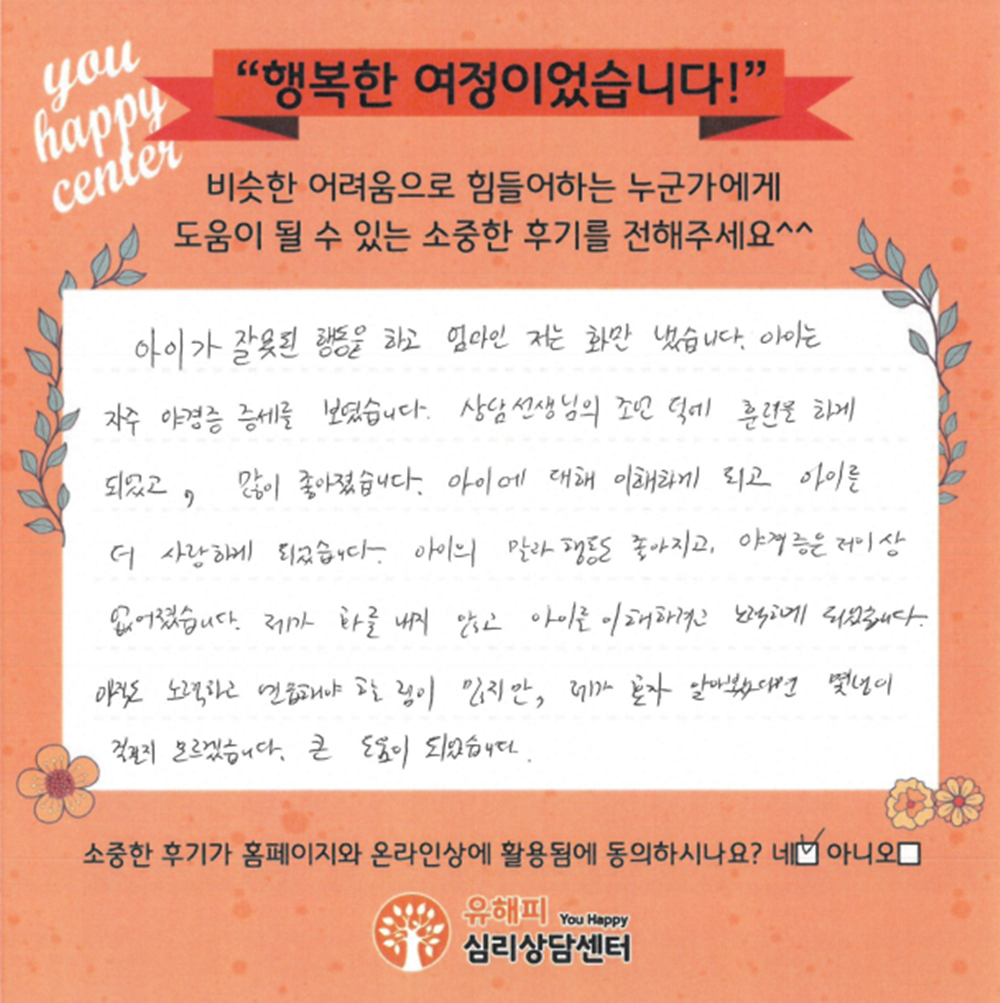 you
happy
center
“행복한 여정이었습니다!”
비슷한 어려움으로 힘들어하는 누군가에게
도움이 될 수 있는 소중한 후기를 전해주세요^^
아이가 잘못된 행동을 하고 엄마인 저는 화만 냈습니다. 아이는
자주 야경증 증세를 보였습니다. 상담선생님의 조언 덕에 훈련을 하게
되었고, 많이 좋아졌습니다. 아이에 대해 이해하게 되고 아이를
더 사랑하게 되었습니다. 아이의 말과 행동도 좋아지고, 야경증은 더이상
없어졌습니다. 제가 화를 내지 않고 아이를 이해하려고 노력하게 되었습니다.
아직도 노력하고 연습해야 할 점이 있지만, 제가 혼자 알아봤다면 몇년이
걸릴지 모르겠습니다. 큰 도움이 되었습니다.
소중한 후기가 홈페이지와 온라인상에 활용됨에 동의하시나요? 네☑ 아니오☐
유해피 You Happy
심리상담센터